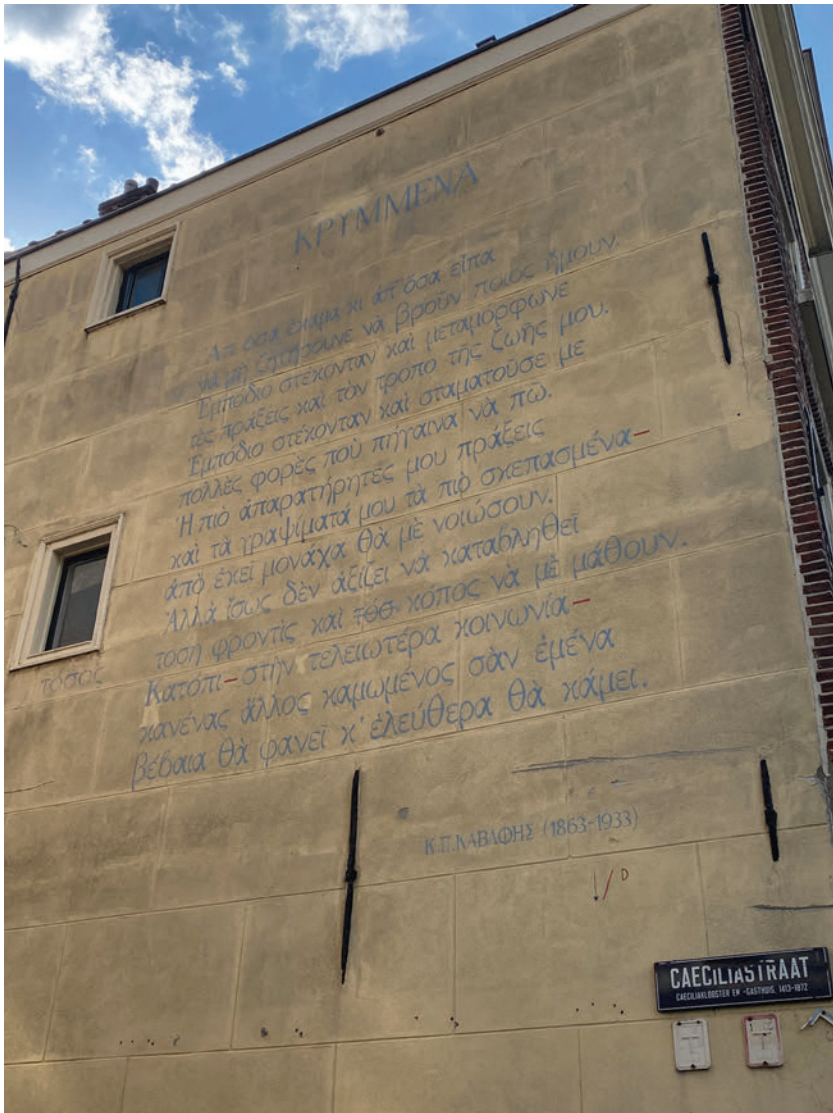 ΚΡΥΜΜΕΝΑ
Ἀπ' ὅσα ἔκαμα κι ἀπ' ὅσα εἶπα
νὰ μὴ ζητήσουνε νὰ βροῦν ποιὸς ἤμουν.
Ἐμπόδιο στέκονταν καὶ μεταμόρφωνε
τὲς πράξεις καὶ τὸν τρόπο τῆς ζωῆς μου.
Ἐμπόδιο στέκονταν καὶ σταματοῦσε με
πολλὲς φορὲς ποὺ πήγαινα νὰ πῶ.
Ἡ πιὸ ἀπαρατήρητές μου πράξεις
καὶ τὰ γραψίματά μου τὰ πιὸ σκεπασμένα—
ἀπὸ ἐκεῖ μονάχα θὰ μὲ νοιώσουν.
Ἀλλὰ ἴσως δὲν ἀξίζει νὰ καταβληθεῖ
τόση φροντὶς καὶ τόσ κόπος νὰ μὲ μάθουν.
τόσος
Κατόπι—στὴν τελειωτέρα κοινωνία—
κανένας ἄλλος καμωμένος σὰν ἐμένα
βέβαια θὰ φανεῖ κ' ἐλεύθερα θὰ κάμει.
Κ.Π.ΚΑΒΑΦΗΣ (1863-1933)
CAECILIASTRAAT
CAECILIAKLOOSTER EN -GASTHUIS, 1413-1872